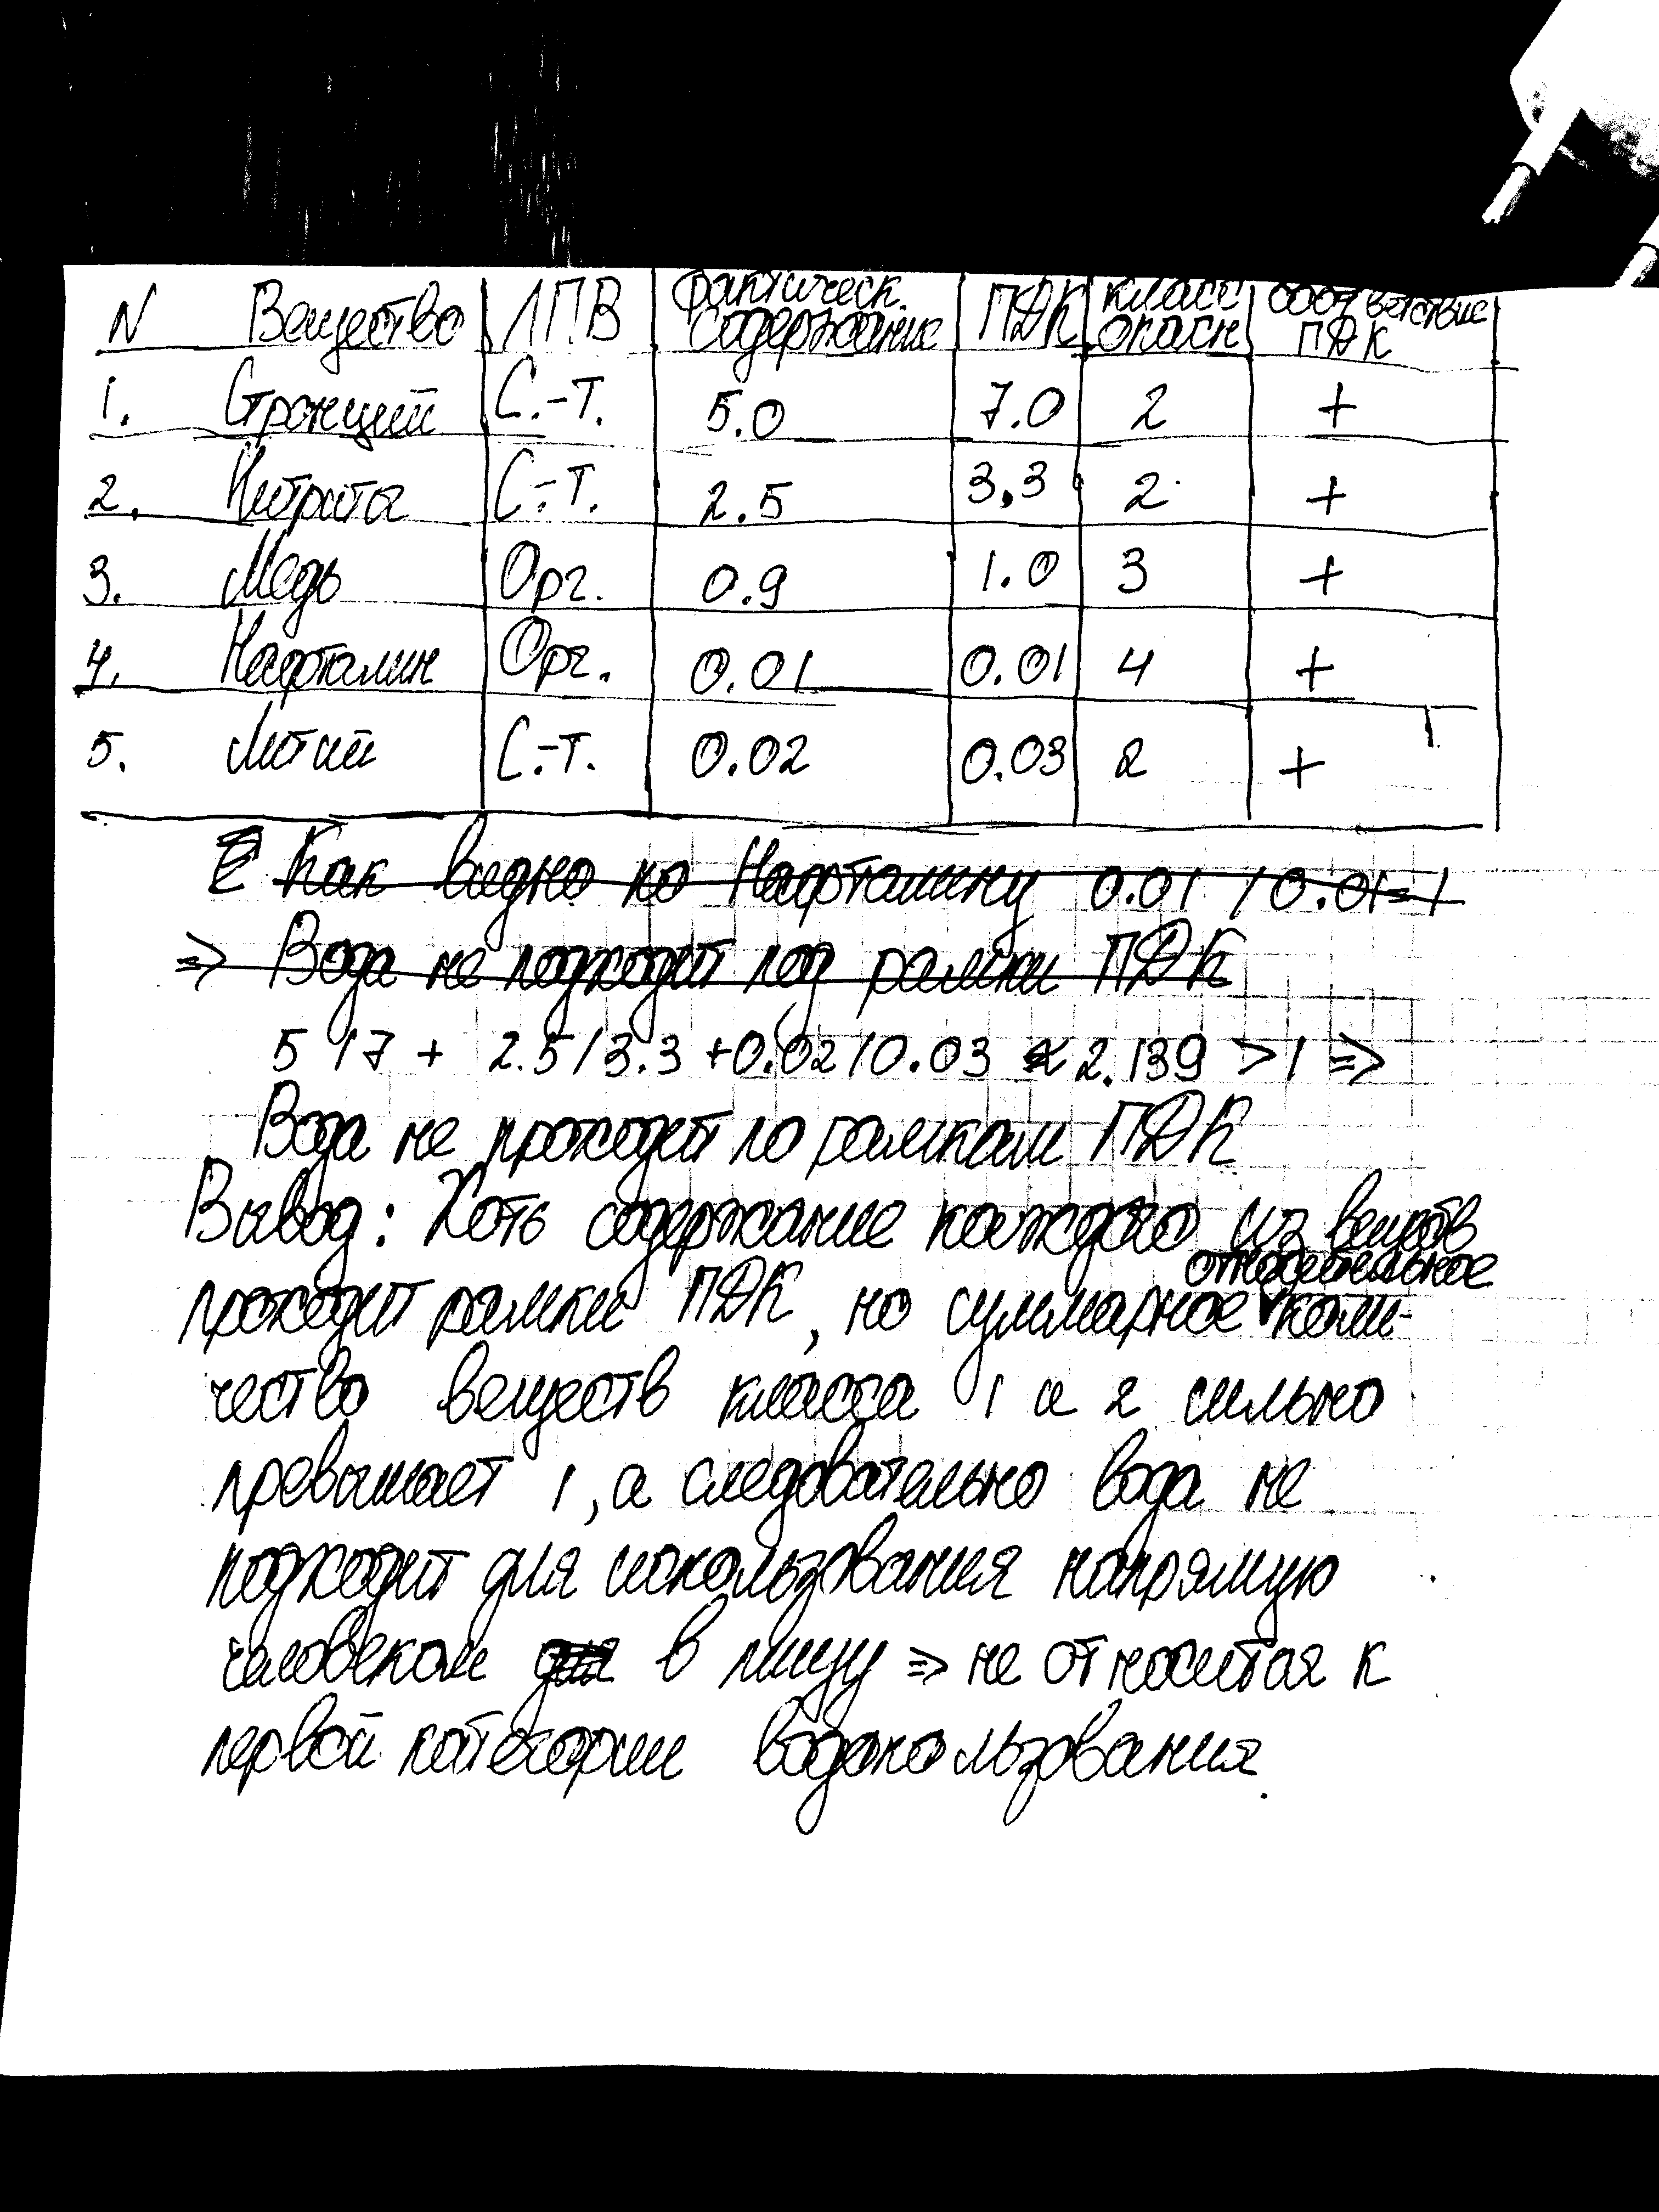 N Вещество ЛПВ Фактическ. содержание ПДК класс опасн соответствие ПДК
1. Стронций С.-Т. 5.0 7.0 2 +
2. Нитриты С.-Т. 2.5 3,3 2 +
3. Медь Орг. 0.9 1.0 3 +
4. Нафталин Орг. 0.01 0.01 4 +
5. Литий С.-Т. 0.02 0.03 2 +
Как видно по Нафталину 0.01 / 0.01=1
=> Вода не подходит под рамки ПДК
5 / 7 + 2.5 / 3.3 + 0.02 / 0.03 ≈ 2.139 > 1 =>
Вода не проходит по рамкам ПДК
Вывод: Хоть содержание каждого из веществ
проходит рамки ПДК, но суммарное относительное коли-
чество веществ класса 1 и 2 сильно
превышает 1, а следовательно вода не
подходит для использования напрямую
человеком в пищу => не относится к
первой категории водопользования.